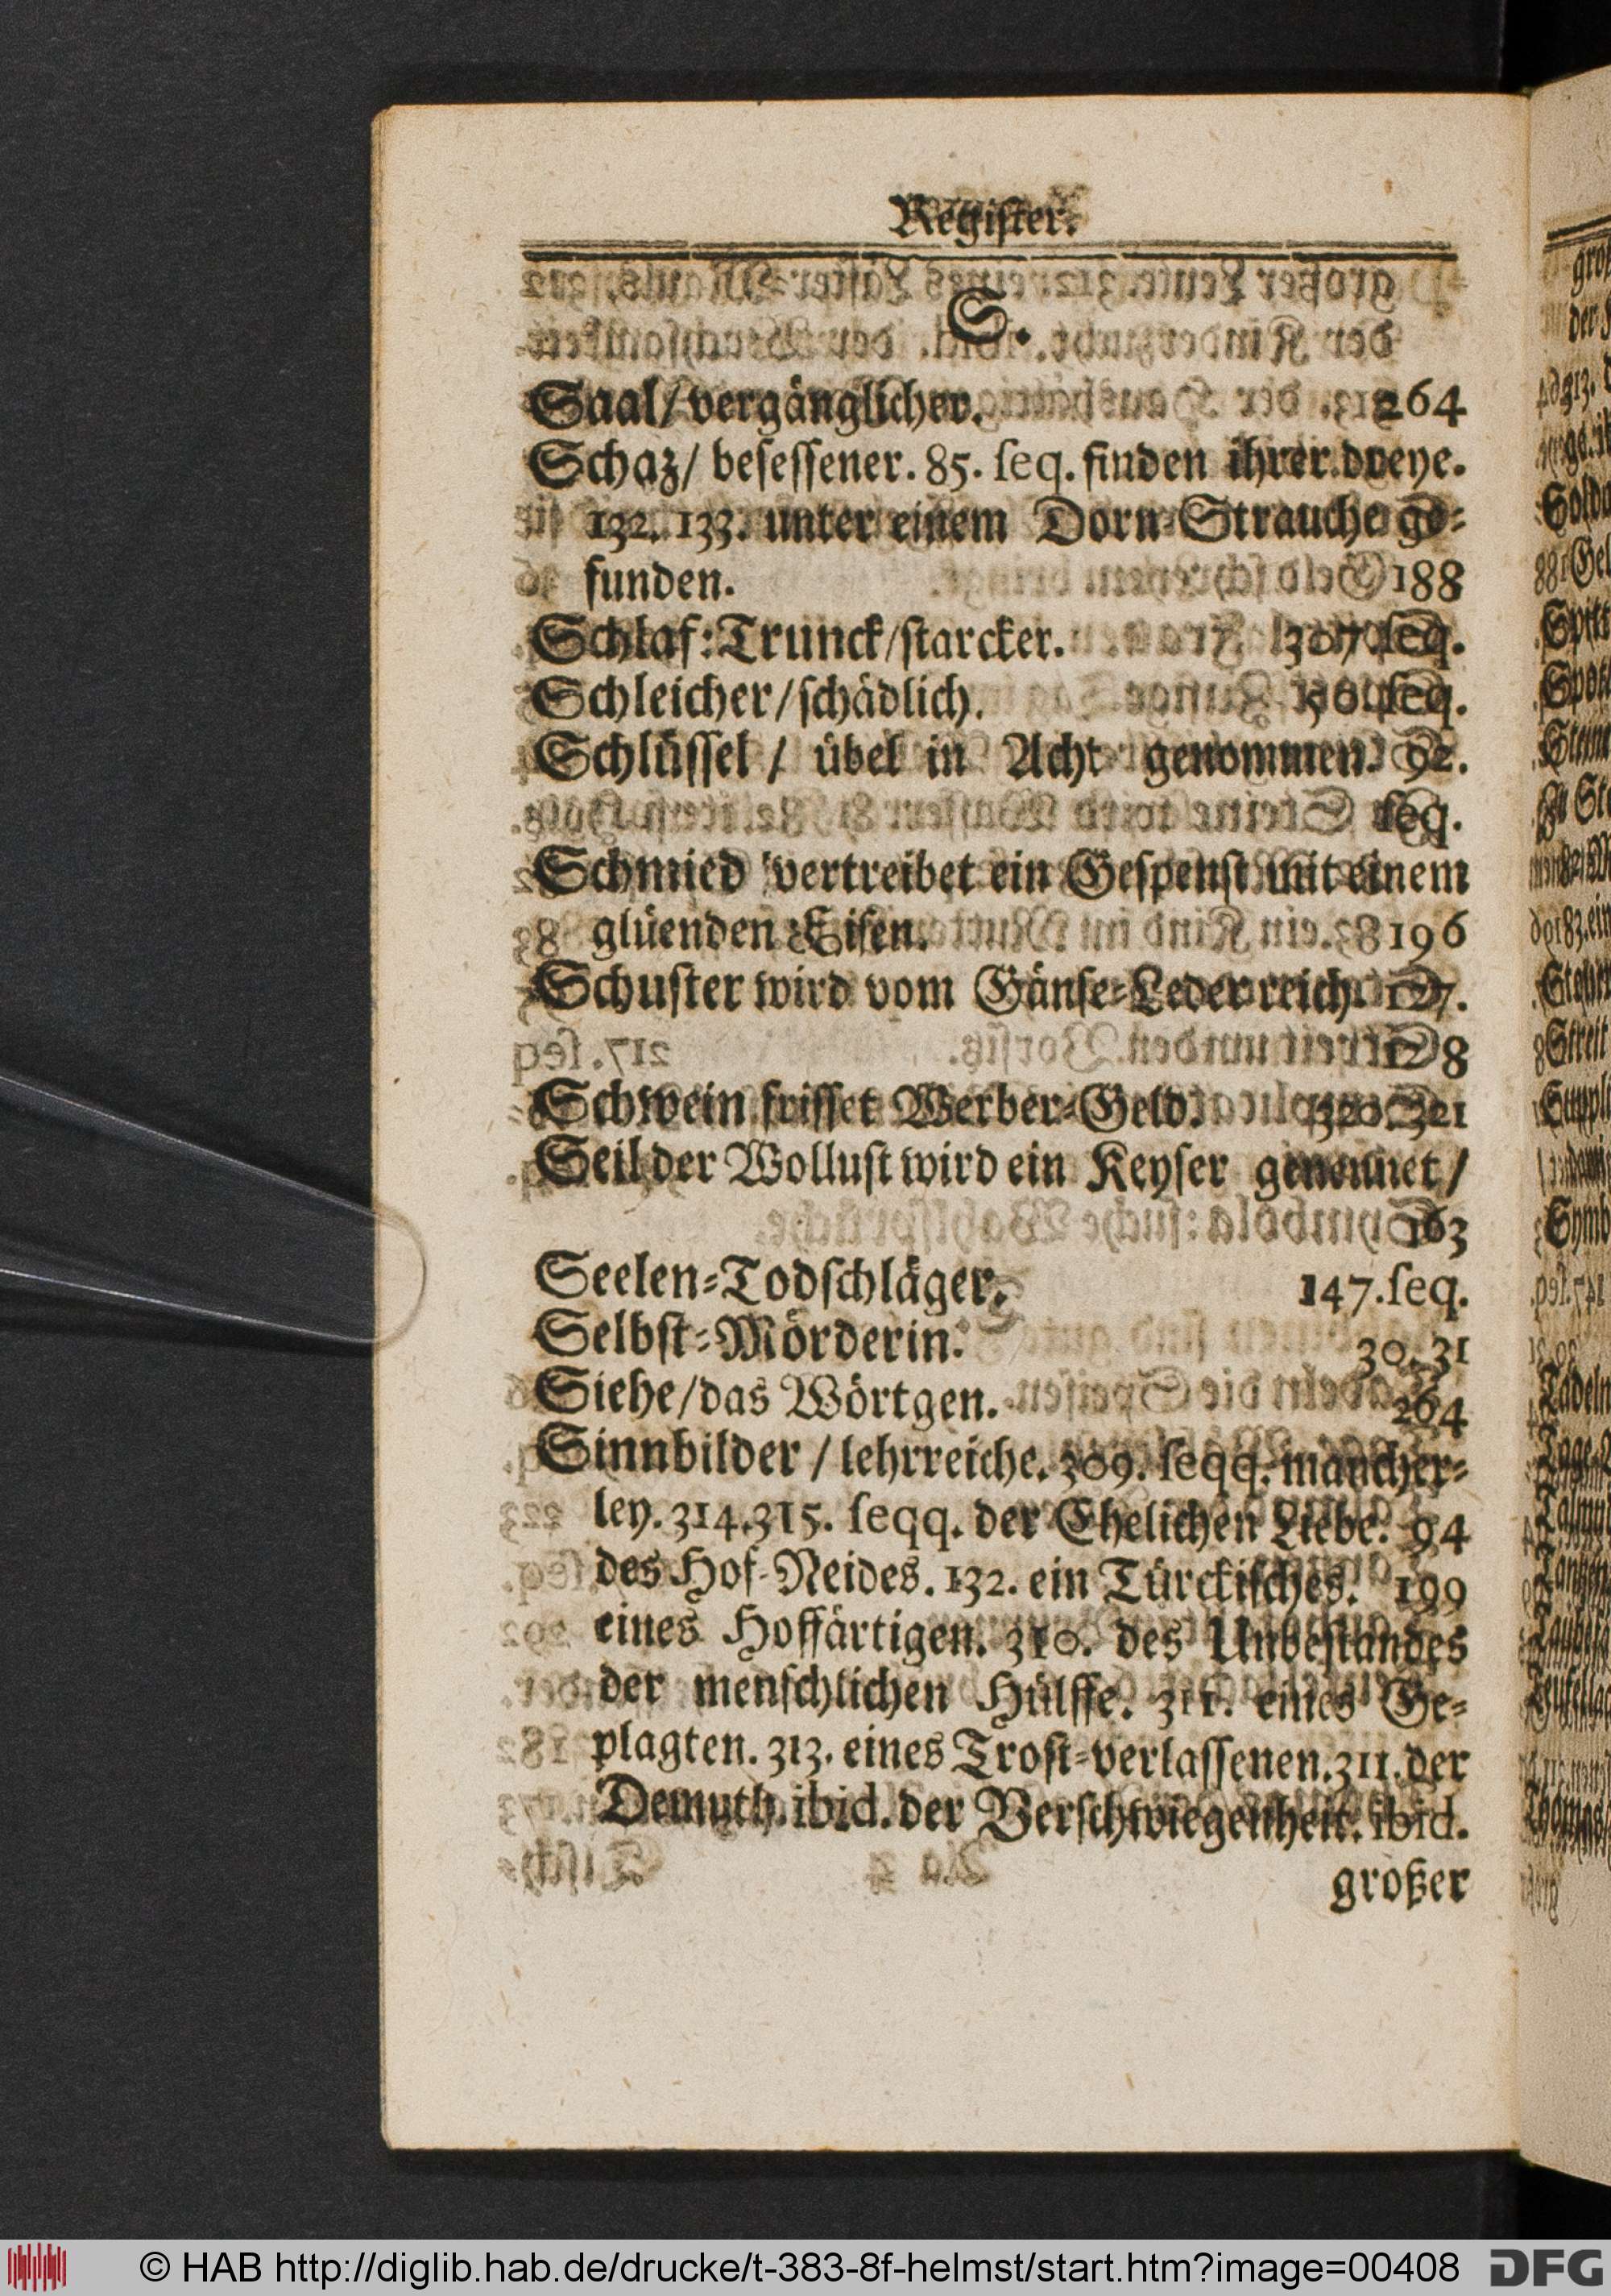 Register.
S.
Saal/ vergänglicher. 264
Schaz/ besessener. 85. seq. finden ihrer dreye.
132. 133. unter einem Dorn-Strauche ge-
funden. 188
Schlaf-Trunck/starcker. 307. seq.
Schleicher/schädlich. 50. seq.
Schlüssel / übel in Acht genommen. 92.
seq.
Schmied vertreibet ein Gespenst mit einem
glüenden Eisen. 196
Schuster wird vom Gänse-Leder reich. 127.
128
Schwein frisset Werber-Geld. 320. 321
Seil der Wollust wird ein Keyser genennet /
163
Seelen-Todschläger. 147. seq.
Selbst-Mörderin. 30. 31
Siehe/das Wörtgen. 264
Sinnbilder / lehrreiche. 309. seqq. mancher-
ley. 314. 315. seqq. der Ehelichen Liebe. 94
des Hof-Neides. 132. ein Türckisches. 199
eines Hoffärtigen. 310. des Unbestandes
der menschlichen Hülffe. 311. eines Ge-
plagten. 313. eines Trost-verlassenen. 311. der
Demuth. ibid. der Verschwiegenheit. ibid.
großer
© HAB http://diglib.hab.de/drucke/t-383-8f-helmst/start.htm?image=00408
DFG